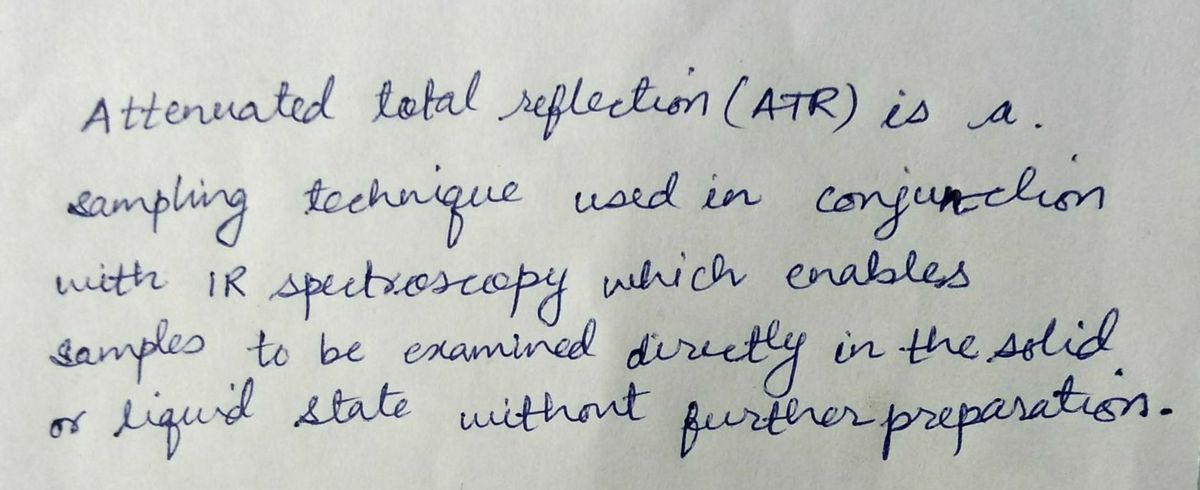 Attenuated total reflection (ATR) is a.
sampling technique used in conjunction
with IR spectroscopy which enables
samples to be examined directly in the solid
or liquid state without further preparation.